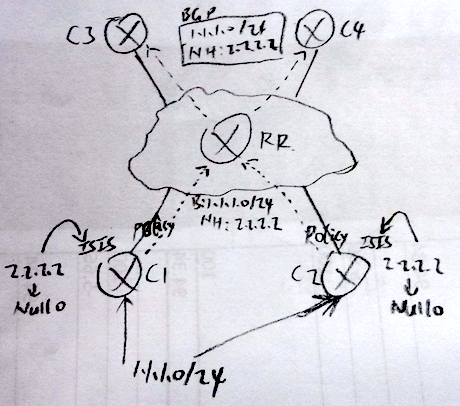 BGP
C3
1.1.1.0/24
NH: 2.2.2.2
C4
RR
B:1.1.1.0/24
NH: 2.2.2.2
Policy
Policy
ISIS
ISIS
2.2.2.2
Null0
C1
C2
2.2.2.2
Null0
1.1.1.0/24